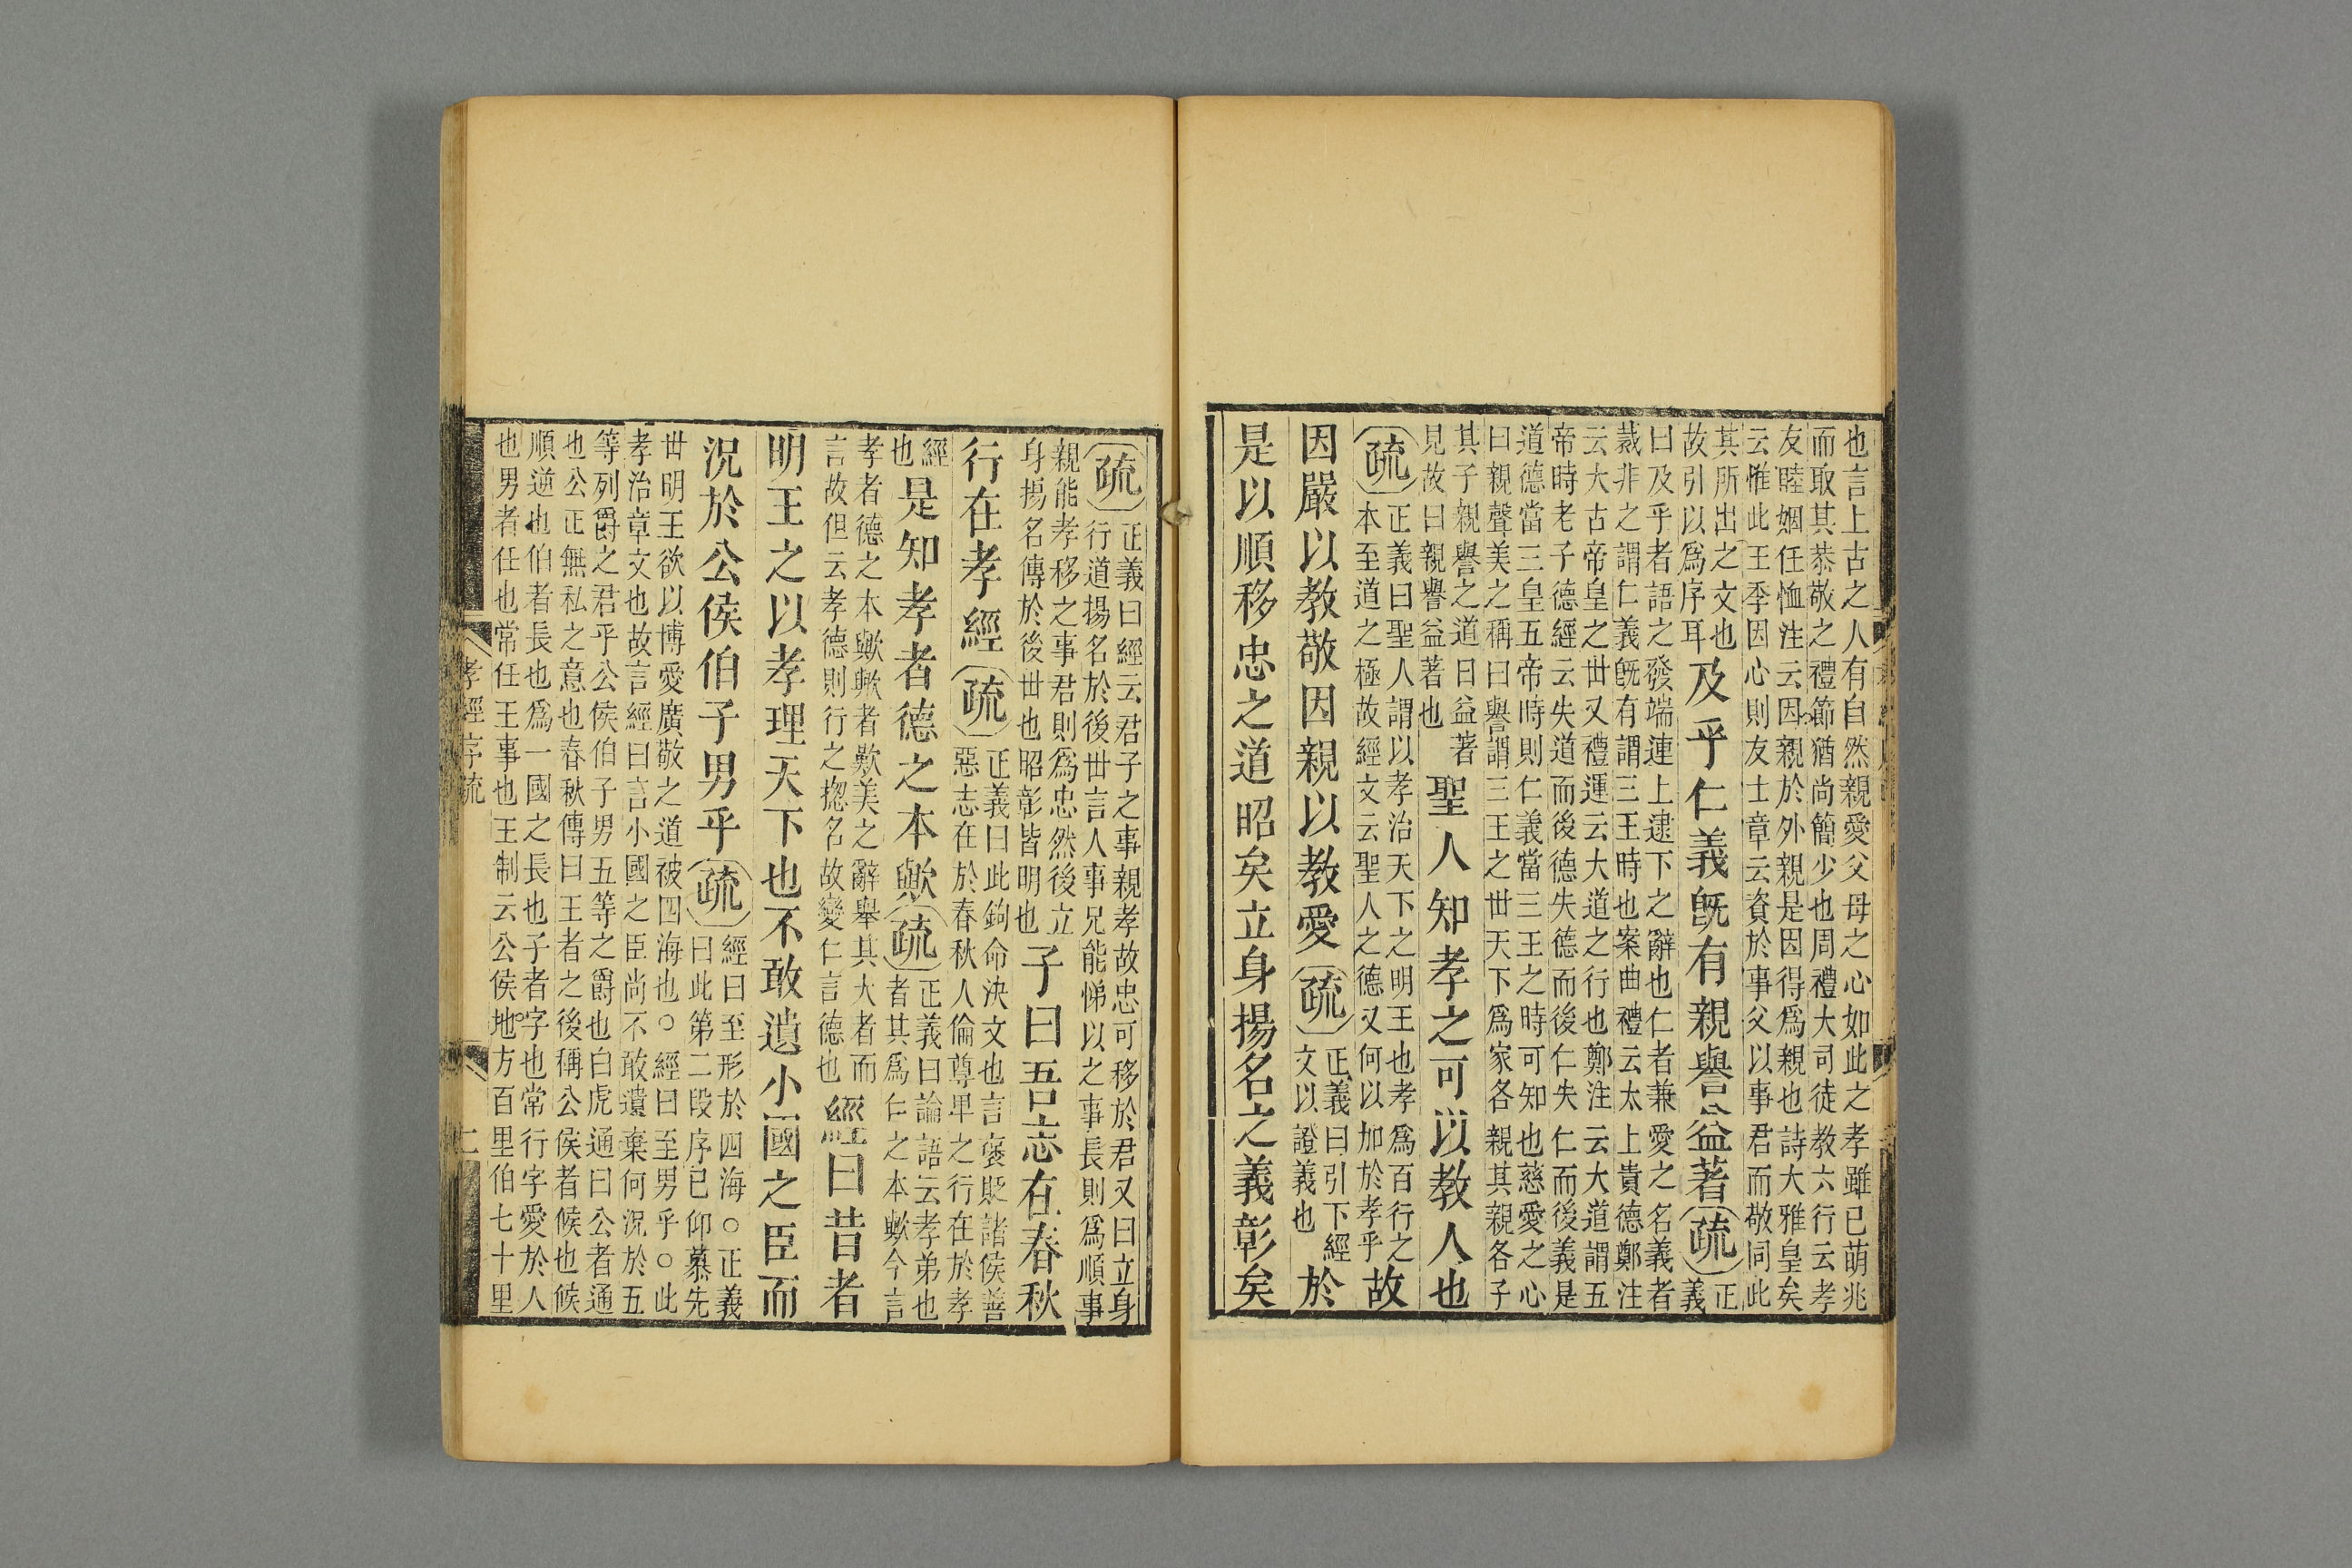 也言上古之人有自然親愛父母之心如此之孝雖已萌兆
而取其恭敬之禮節猶尚簡少也周禮大司徒教六行云孝
友睦姻任恤注云因親於外親是因得爲親也詩大雅皇矣
云惟此王季因心則友士章云資於事父以事君而敬同此
其所出之文也
故引以爲序耳
及乎仁義旣有親譽益著
疏
正
義
曰及乎者語之發端連上逮下之辭也仁者兼愛之名義者
裁非之謂仁義旣有謂三王時也案曲禮云太上貴德鄭注
云大古帝皇之世又禮運云大道之行也鄭注云大道謂五
帝時老子德經云失道而後德失德而後仁失仁而後義是
道德當三皇五帝時則仁義當三王之時可知也慈愛之心
曰親聲美之稱曰譽謂三王之世天下爲家各親其親各子
其子親譽之道日益著
見故曰親譽益著也
聖人知孝之可以教人也
疏
正義曰聖人謂以孝治天下之明王也孝爲百行之
本至道之極故經文云聖人之德又何以加於孝乎
故
因嚴以教敬因親以教愛
疏
正義曰引下經
文以證義也
於
是以順移忠之道昭矣立身揚名之義彰矣
疏
正義曰經云君子之事親孝故忠可移於君又曰立身
行道揚名於後世言人事兄能悌以之事長則爲順事
親能孝移之事君則爲忠然後立
身揚名傳於後世也昭彰皆明也
子曰吾志在春秋
行在孝經
疏
正義曰此鉤命決文也言褒貶諸侯善
惡志在於春秋人倫尊卑之行在於孝
經
也
是知孝者德之本歟
疏
正義曰論語云孝弟也
者其爲仁之本歟今言
孝者德之本歟歟者歎美之辭舉其大者而
言故但云孝德則行之揔名故變仁言德也
經曰昔者
明王之以孝理天下也不敢遺小國之臣而
況於公侯伯子男乎
疏
經曰至形於四海○正義
曰此第二段序已仰慕先
世明王欲以博愛廣敬之道被四海也○經曰至男乎○此
孝治章文也故言經曰言小國之臣尚不敢遺棄何況於五
等列爵之君乎公侯伯子男五等之爵也白虎通曰公者通
也公正無私之意也春秋傳曰王者之後稱公侯者候也候
順逆也伯者長也爲一國之長也子者字也常行字愛於人
也男者任也常任王事也王制云公侯地方百里伯七十里
孝經序疏
二